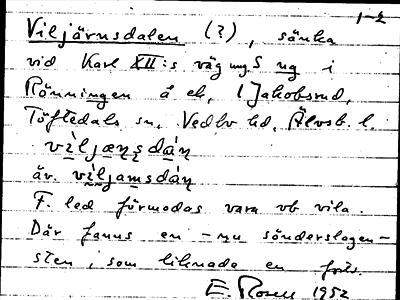 1-2
Viljärnsdalen (?), sänka
vid Karl XII:s väg mg S ng i
Rönningen å eh. 1 Jakobsrud,
Töftedals sn, Vedbo hd, Älvsb. l.
vìljæṇṣdáṇ
äv. vìljamsdáṇ
F. led förmodas vara vb vila.
Där fanns en - nu sönderslagen -
sten, som liknade en
E Rosell 1952